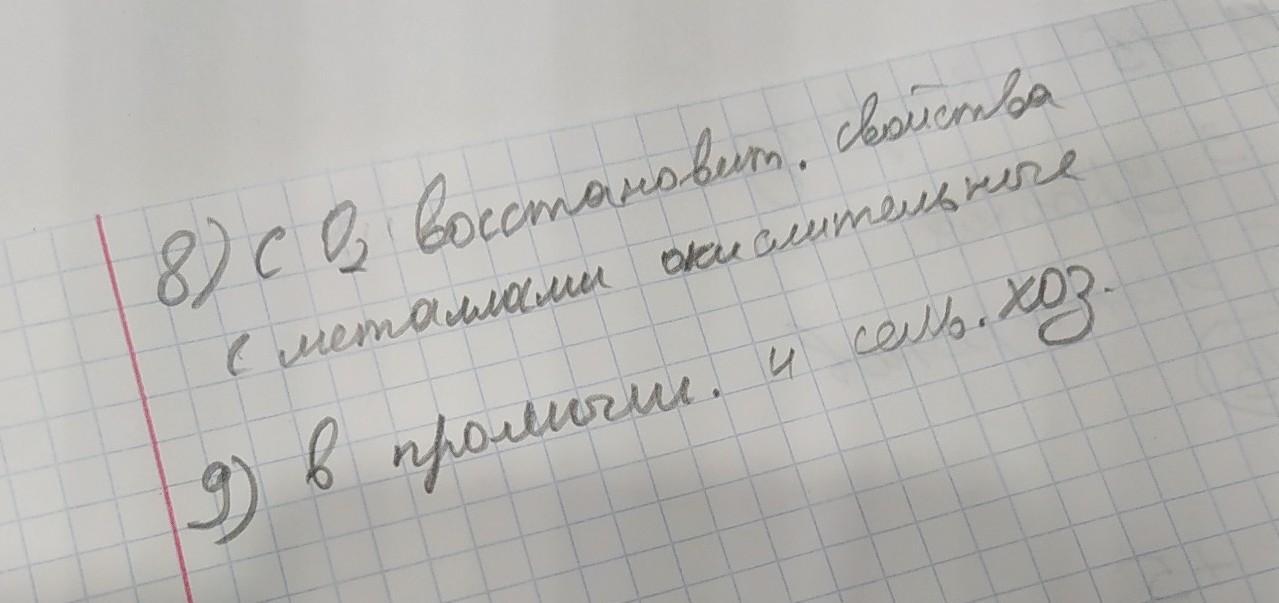 8) с O₂ восстановит. свойства
с металлами окислительные
9) в промышл. и сель. хоз.